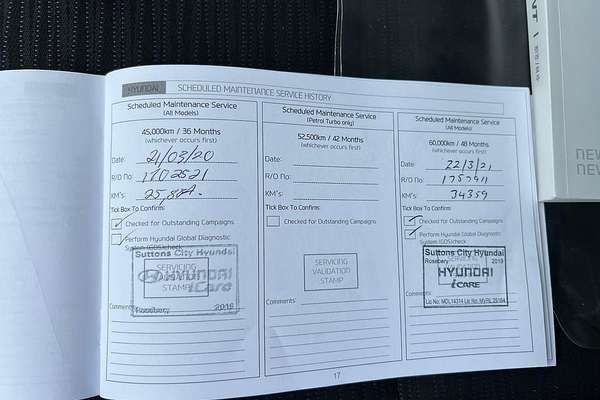 HYUNDAI SCHEDULED MAINTENANCE SERVICE HISTORY
Scheduled Maintenance Service
(All Models)
45,000km / 36 Months
(whichever occurs first)
Date: 21/03/20
R/O No: 1702521
KM's:
Tick Box To Confirm:
Checked for Outstanding Campaigns
Perform Hyundai Global Diagnostic
System (GDS)check
Suttons City Hyundai
SERVICING
VALIDATION
STAMP
HYUNDAI
iCare
Comments:
Rosebery 2018
Scheduled Maintenance Service
(Petrol Turbo only)
52,500km / 42 Months
(whichever occurs first)
Date:
R/O No:
KM's:
Tick Box To Confirm:
Checked for Outstanding Campaigns
SERVICING
VALIDATION
STAMP
Comments:
Scheduled Maintenance Service
(All Models)
60,000km / 48 Months
(whichever occurs first)
Date: 22/3/21
R/O No: 1757911
KM's: 34359
Tick Box To Confirm:
Checked for Outstanding Campaigns
Perform Hyundai Global Diagnostic
System (GDS)check
Suttons City Hyundai
Rosebery 2019
HYUNDAI
iCARE
Comments:
17
NT
NEW
NEW